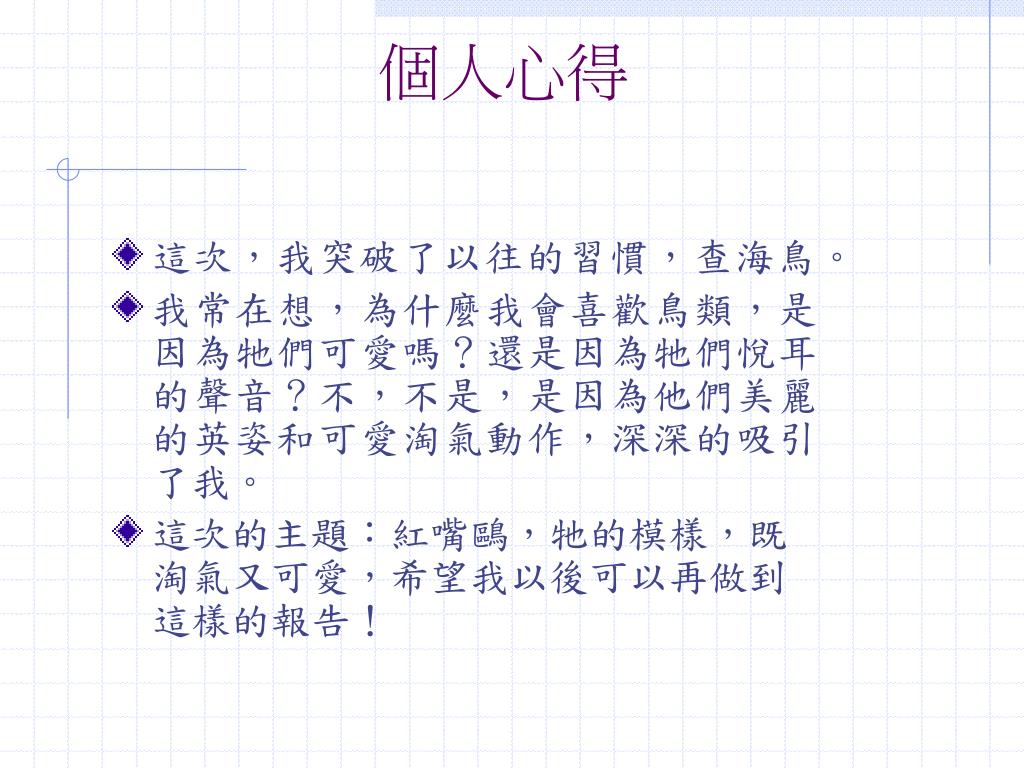 個人心得
這次，我突破了以往的習慣，查海鳥。
我常在想，為什麼我會喜歡鳥類，是
因為牠們可愛嗎？還是因為牠們悅耳
的聲音？不，不是，是因為他們美麗
的英姿和可愛淘氣動作，深深的吸引
了我。
這次的主題：紅嘴鷗，牠的模樣，既
淘氣又可愛，希望我以後可以再做到
這樣的報告！